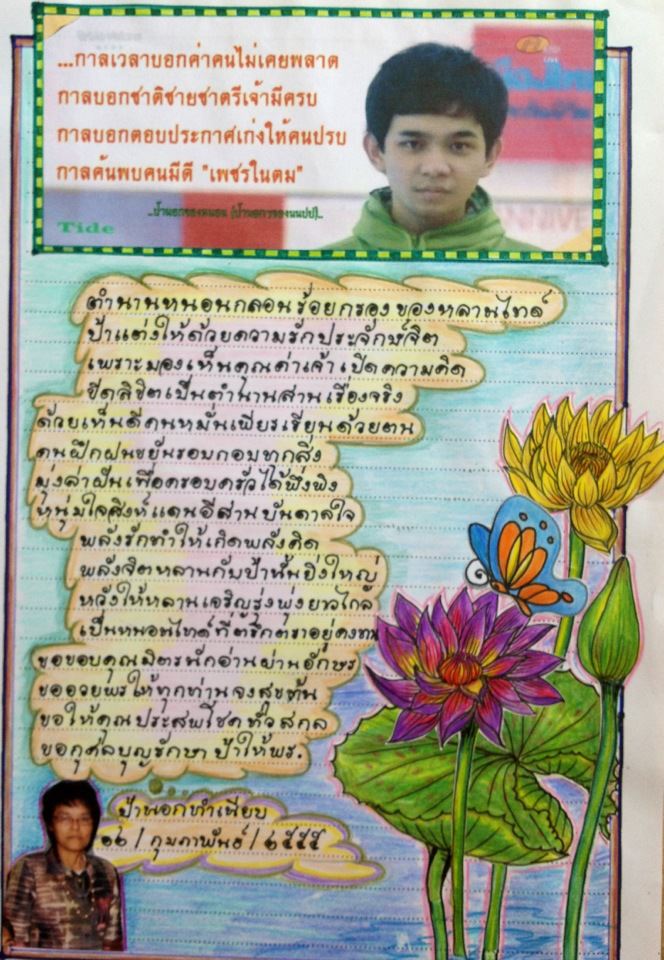 ...กาลเวลาบอกค่าคนไม่เคยพลาด
กาลบอกชาติชายชาตรีเจ้ามีครบ
กาลบอกตอบประกาศเก่งให้คนปรบ
กาลค้นพบคนมีดี "เพชรในตม"
Tide
ตำนานหนอนกลอนร้อยกรองของหลานไทด์
ป้าแต่งให้ด้วยความรักประจักษ์จิต
เพราะมองเห็นคุณค่าเจ้าเปิดความคิด
ขีดลิขิตเป็นตำนานสานเรื่องจริง
ด้วยเห็นดีคนหมั่นเพียรเรียนด้วยตน
คนฝึกฝนขยันรอบกอบทุกสิ่ง
มุ่งล่าฝันเพื่อครอบครัวได้พึ่งพิง
หนุ่มใจสิงห์แดนอีสานบันดาลใจ
พลังรักทำให้เกิดพลังคิด
พลังจิตหลานกับป้านั้นยิ่งใหญ่
หวังให้หลานเจริญรุ่งพุ่งยาวไกล
เป็นหนอนไทด์ที่ตรึกตราอยู่
ขอขอบคุณมิตรนักอ่านผ่านอักษร
ขออวยพรให้ทุกท่านจงสุขสันต์
ขอให้คุณประสพโชคทั่วสกล
ขอกุศลบุญรักษา ป้าให้พร.
ป้านอกทำเนียบ
๑๖ / กุมภาพันธ์ / ๒๕๕๕